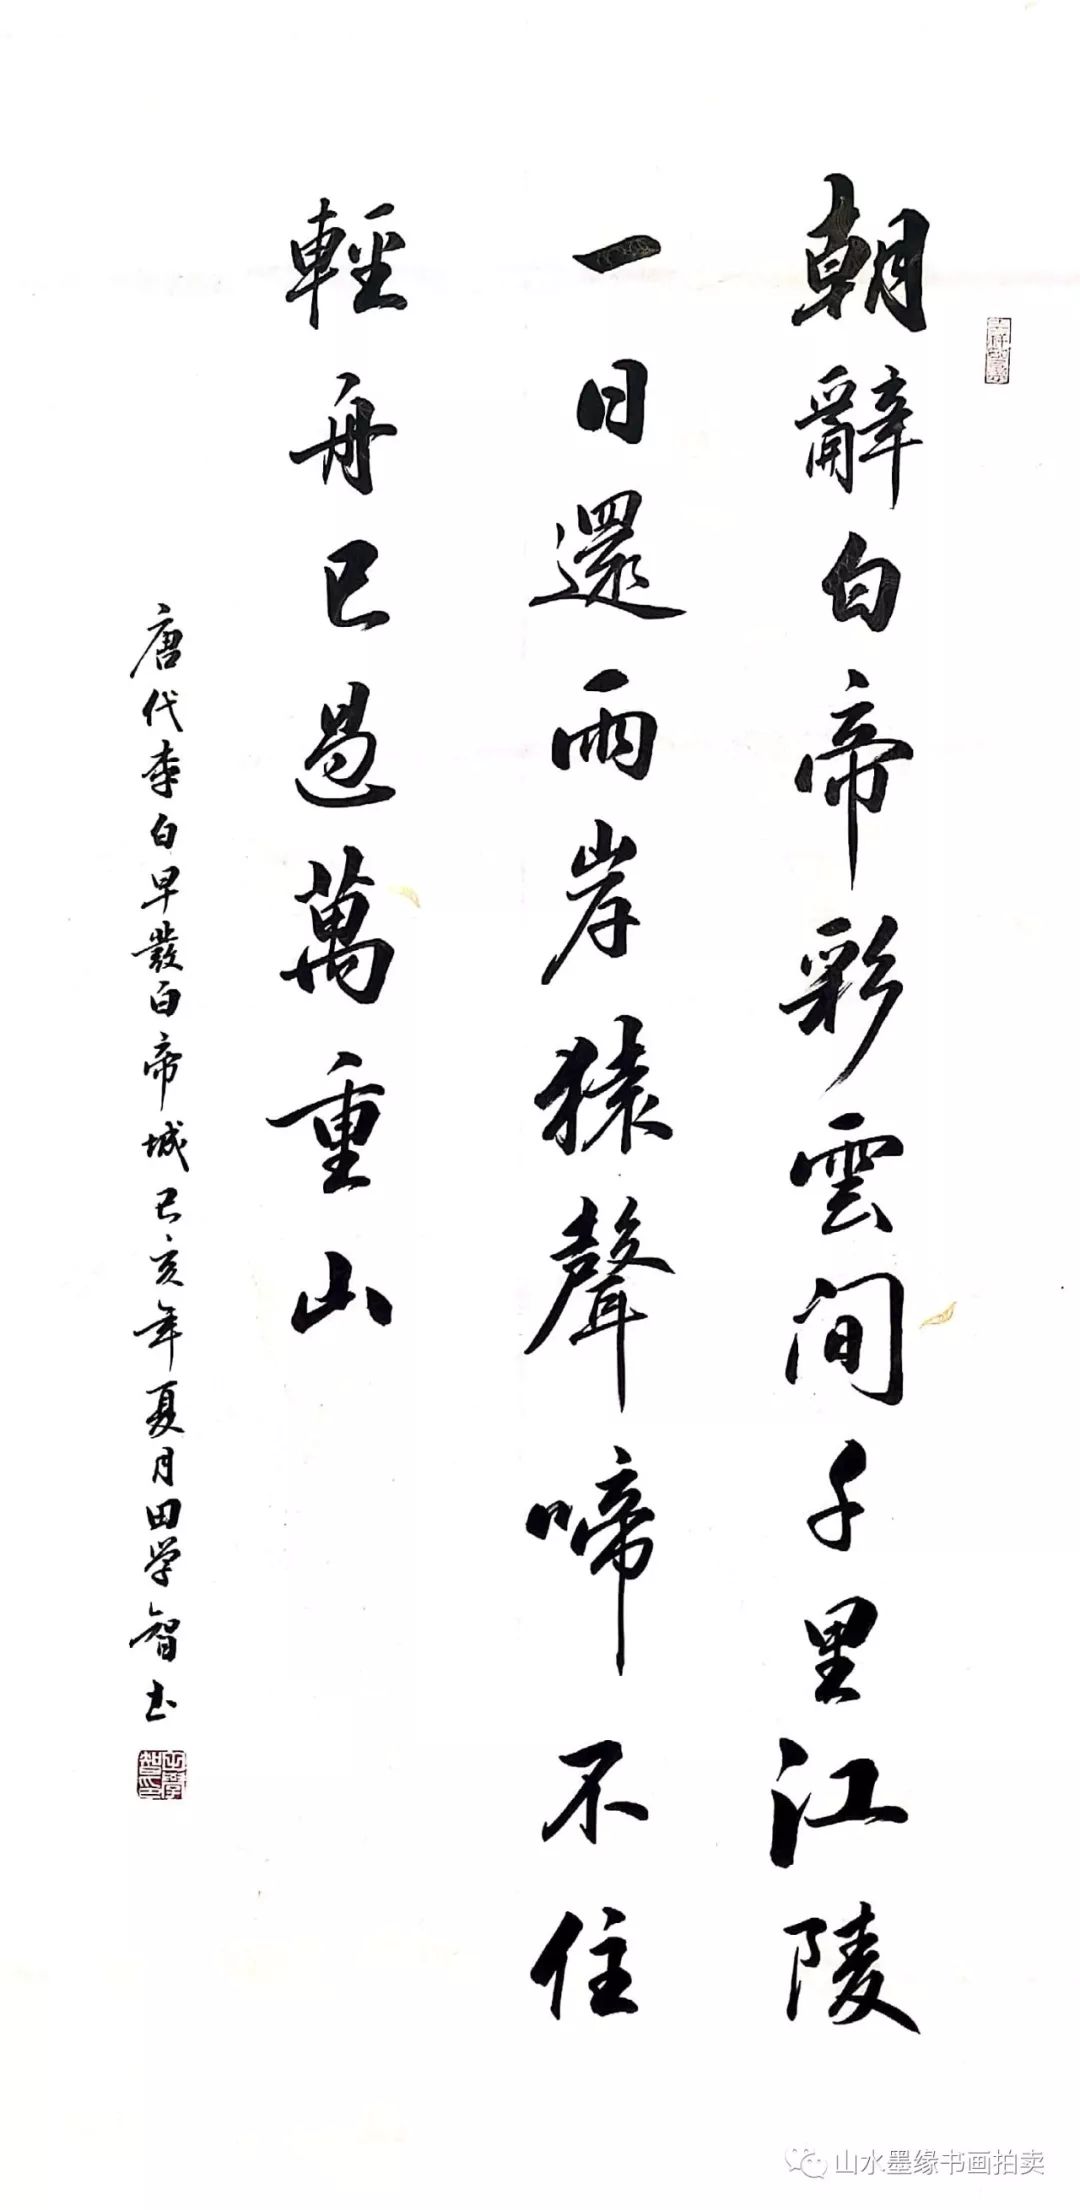 朝辭白帝彩雲间千里江陵
一日還兩岸猿聲啼不住
輕舟已過萬重山
唐代李白早發白帝城己亥年夏月田学智书
山水墨缘书画拍卖